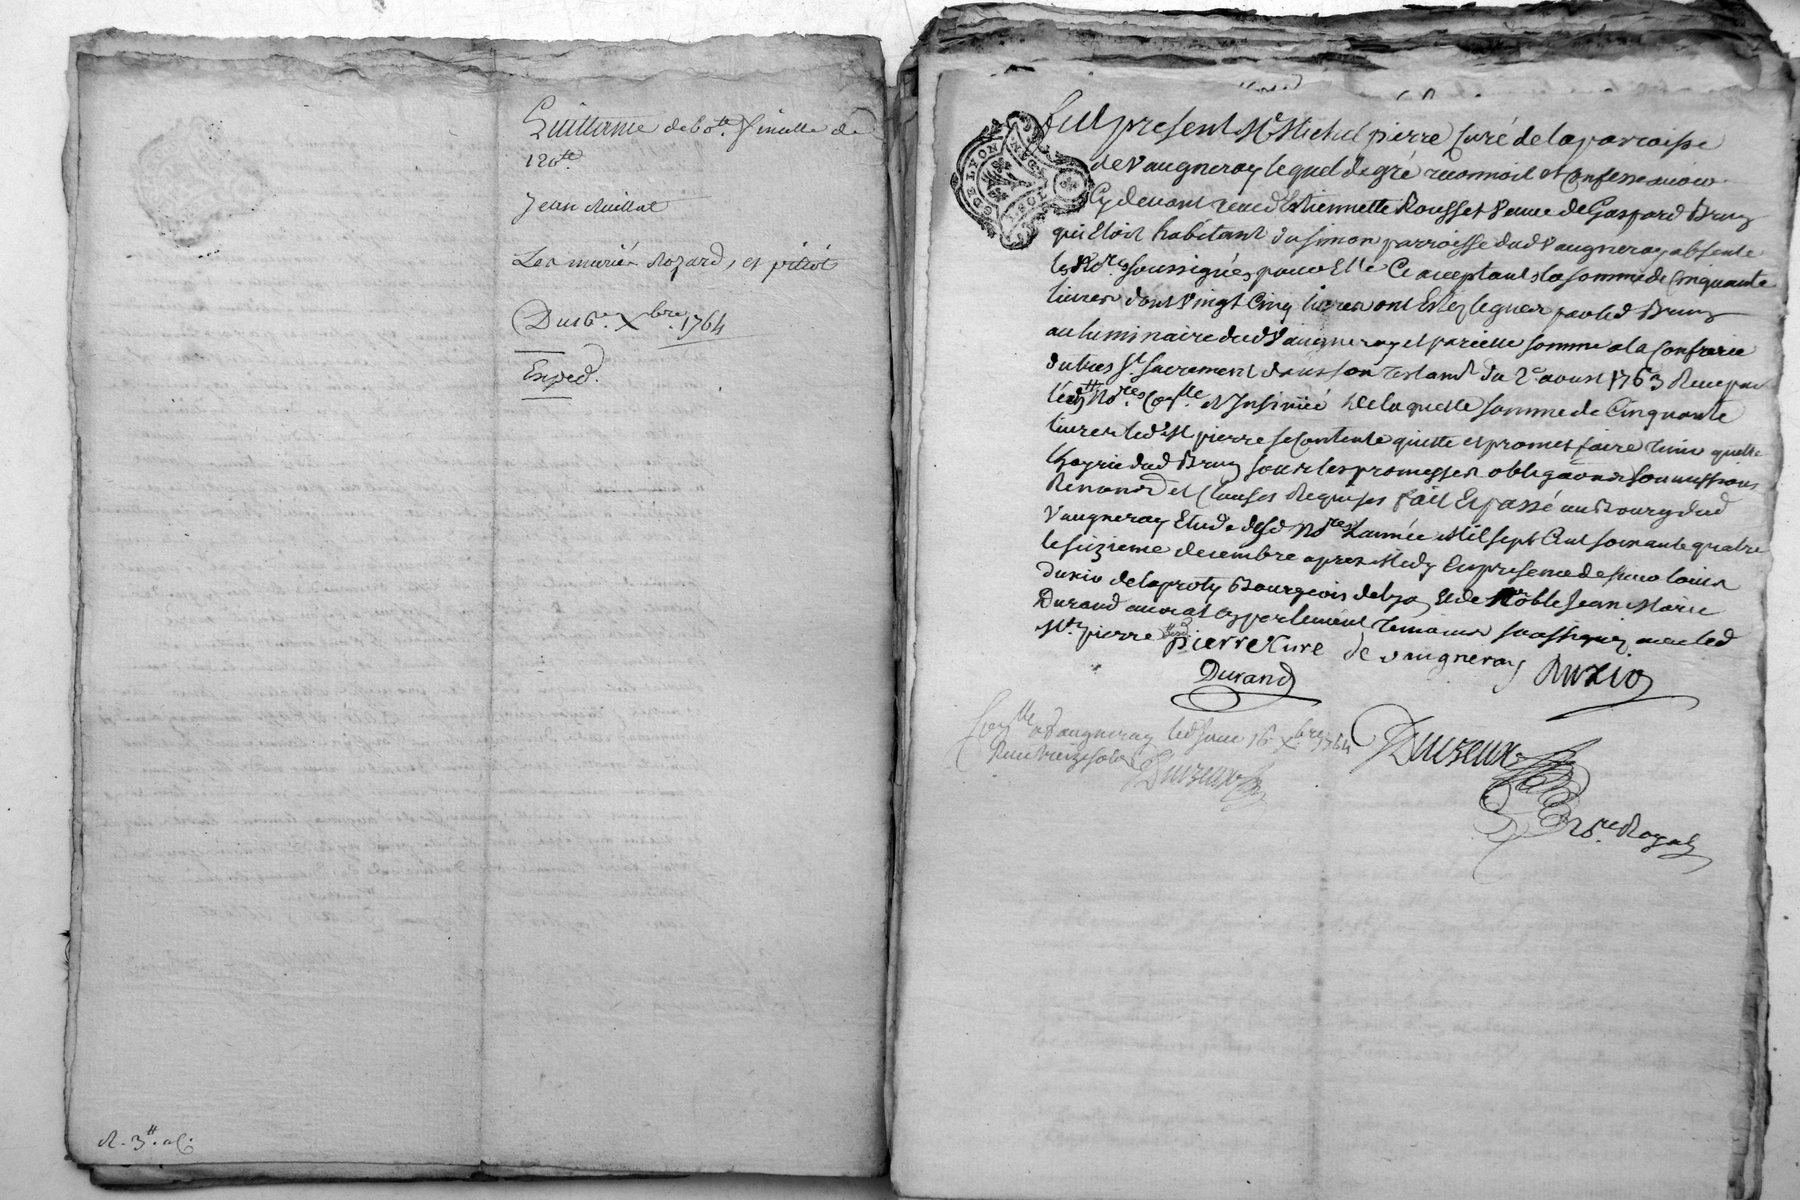 Quittance de 60lt. Simulte de
120lt.
Jean Muillat
Les mariés Rozard, et
Du 16e. Xbre. 1764
Exped.
R. 3lt.
G. DE LYON
Fut present Mre Michel pierre Curé de la parroisse
de Vaugneray lequel de gré reconnoit et Confesse avoir
Cy devant receu d'Etiennette Rousset Veuve de Gaspard Brun
qui Etoit habitant du Simon parroisse dud Vaugneray absente
les Nores soussignés pour Elle Ce acceptants la somme de Cinquante
livres dont Vingt Cinq livres ont Eté leguées par led Brun
au luminaire dud Vaugneray et pareille somme a la Confrerie
du tres St. Sacrement dans son Testamt du 2e aoust 1763 Receu par
lesd Nores Conllé et Insinué de laquelle somme de Cinquante
livres led Mre pierre se Contente quitte et promet faire tenir quitte
l'hoyrie dud Brun sous les promesses obligaons soumissions
Renonons et Clauses Requises fait Et passé au Bourg dud
Vaugneray Etude desd Nores l'année Mil sept Cent soixante quatre
le seizieme decembre apres Midy En presence de sieur louis
Duxio de laproty Bourgeois de lyon Et de Noble Jean Marie
Durand avocat en parlement Temoins soussignés avec led
Mre. pierre
pierre Curé de vaugneray Duxio
Durand
Conllé a Vaugneray led jour 16 Xbre 1764
Receu treize sols Duzeux
Duzeux
Nore. Royal